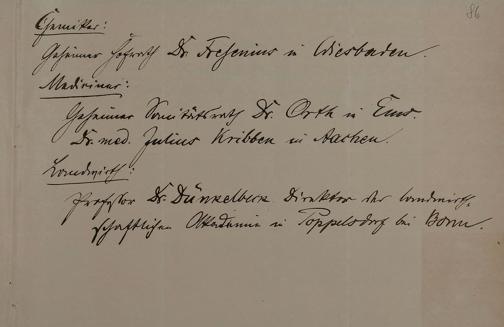 86
Chemiker:
Geheimer Hofrath Dr. Fresenius in Wiesbaden.
Mediciner:
Geheimer Sanitätsrath Dr. Orth in Ems.
Dr. med. Julius Kribben in Aachen.
Landwirth:
Professor Dr. Dünkelberg Direktor der landwirth-
schaftlichen Akademie in Poppelsdorf bei Bonn.